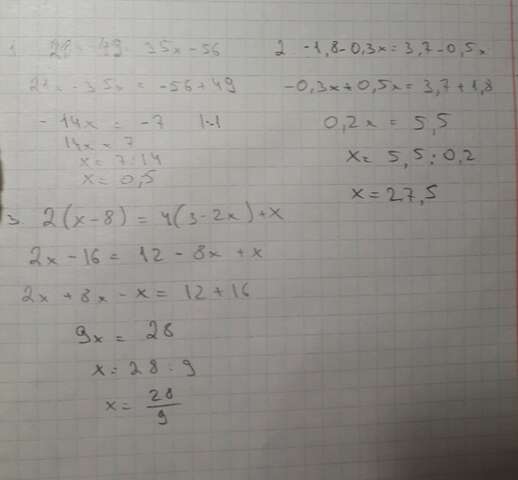 1. 21x - 49 = 35x - 56
21x - 35x = -56 + 49
- 14x = -7 |-1
14x = 7
x = 7 : 14
x = 0,5
2 -1,8 - 0,3x = 3,7 - 0,5x
-0,3x + 0,5x = 3,7 + 1,8
0,2x = 5,5
x = 5,5 : 0,2
x = 27,5
3. 2(x - 8) = 4(3 - 2x) + x
2x - 16 = 12 - 8x + x
2x + 8x - x = 12 + 16
9x = 28
x = 28 : 9
x = 28/9